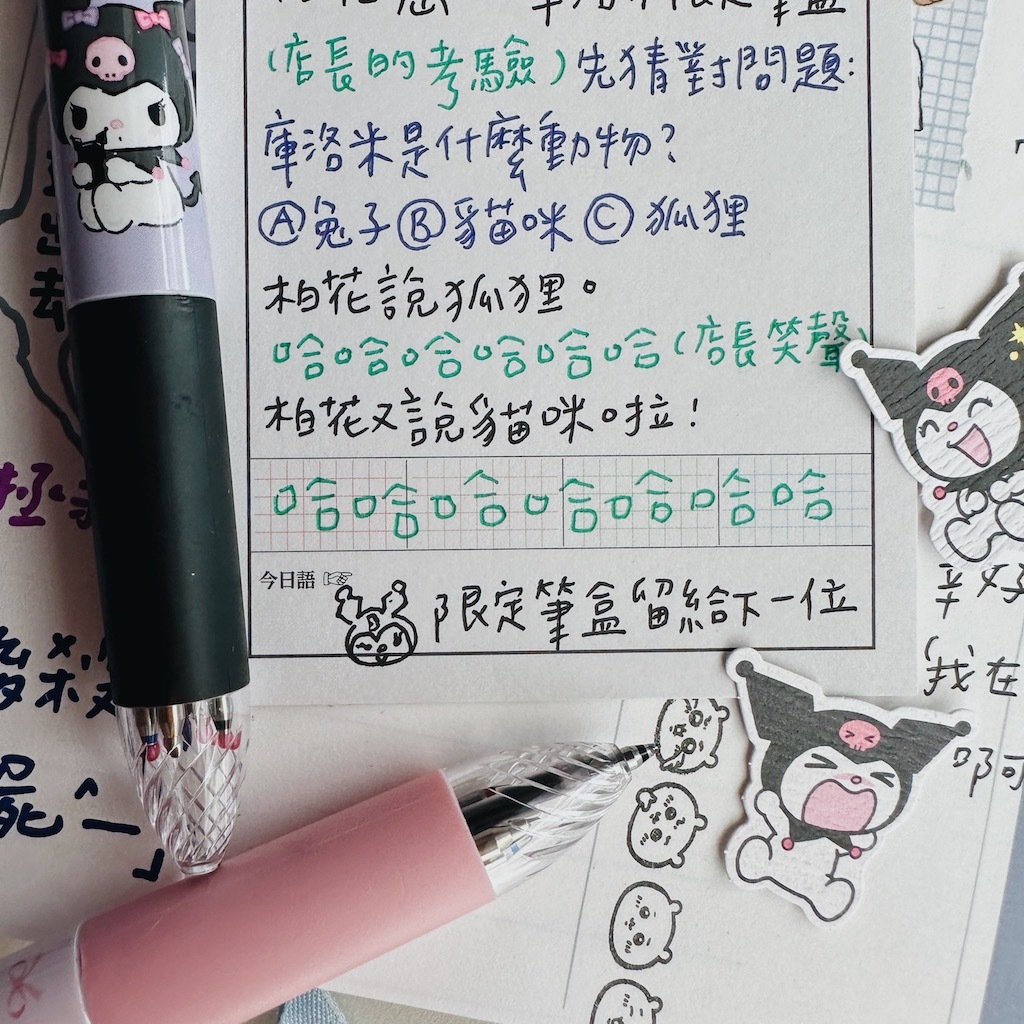 (店長的考驗)先猜對問題:
庫洛米是什麼動物?
Ⓐ兔子Ⓑ貓咪Ⓒ狐狸
柏花說狐狸。
哈哈哈哈哈哈(店長笑聲
柏花又說貓咪啦!
哈哈哈哈哈哈哈
今日語 ☞
限定筆盒留給下一位
我在